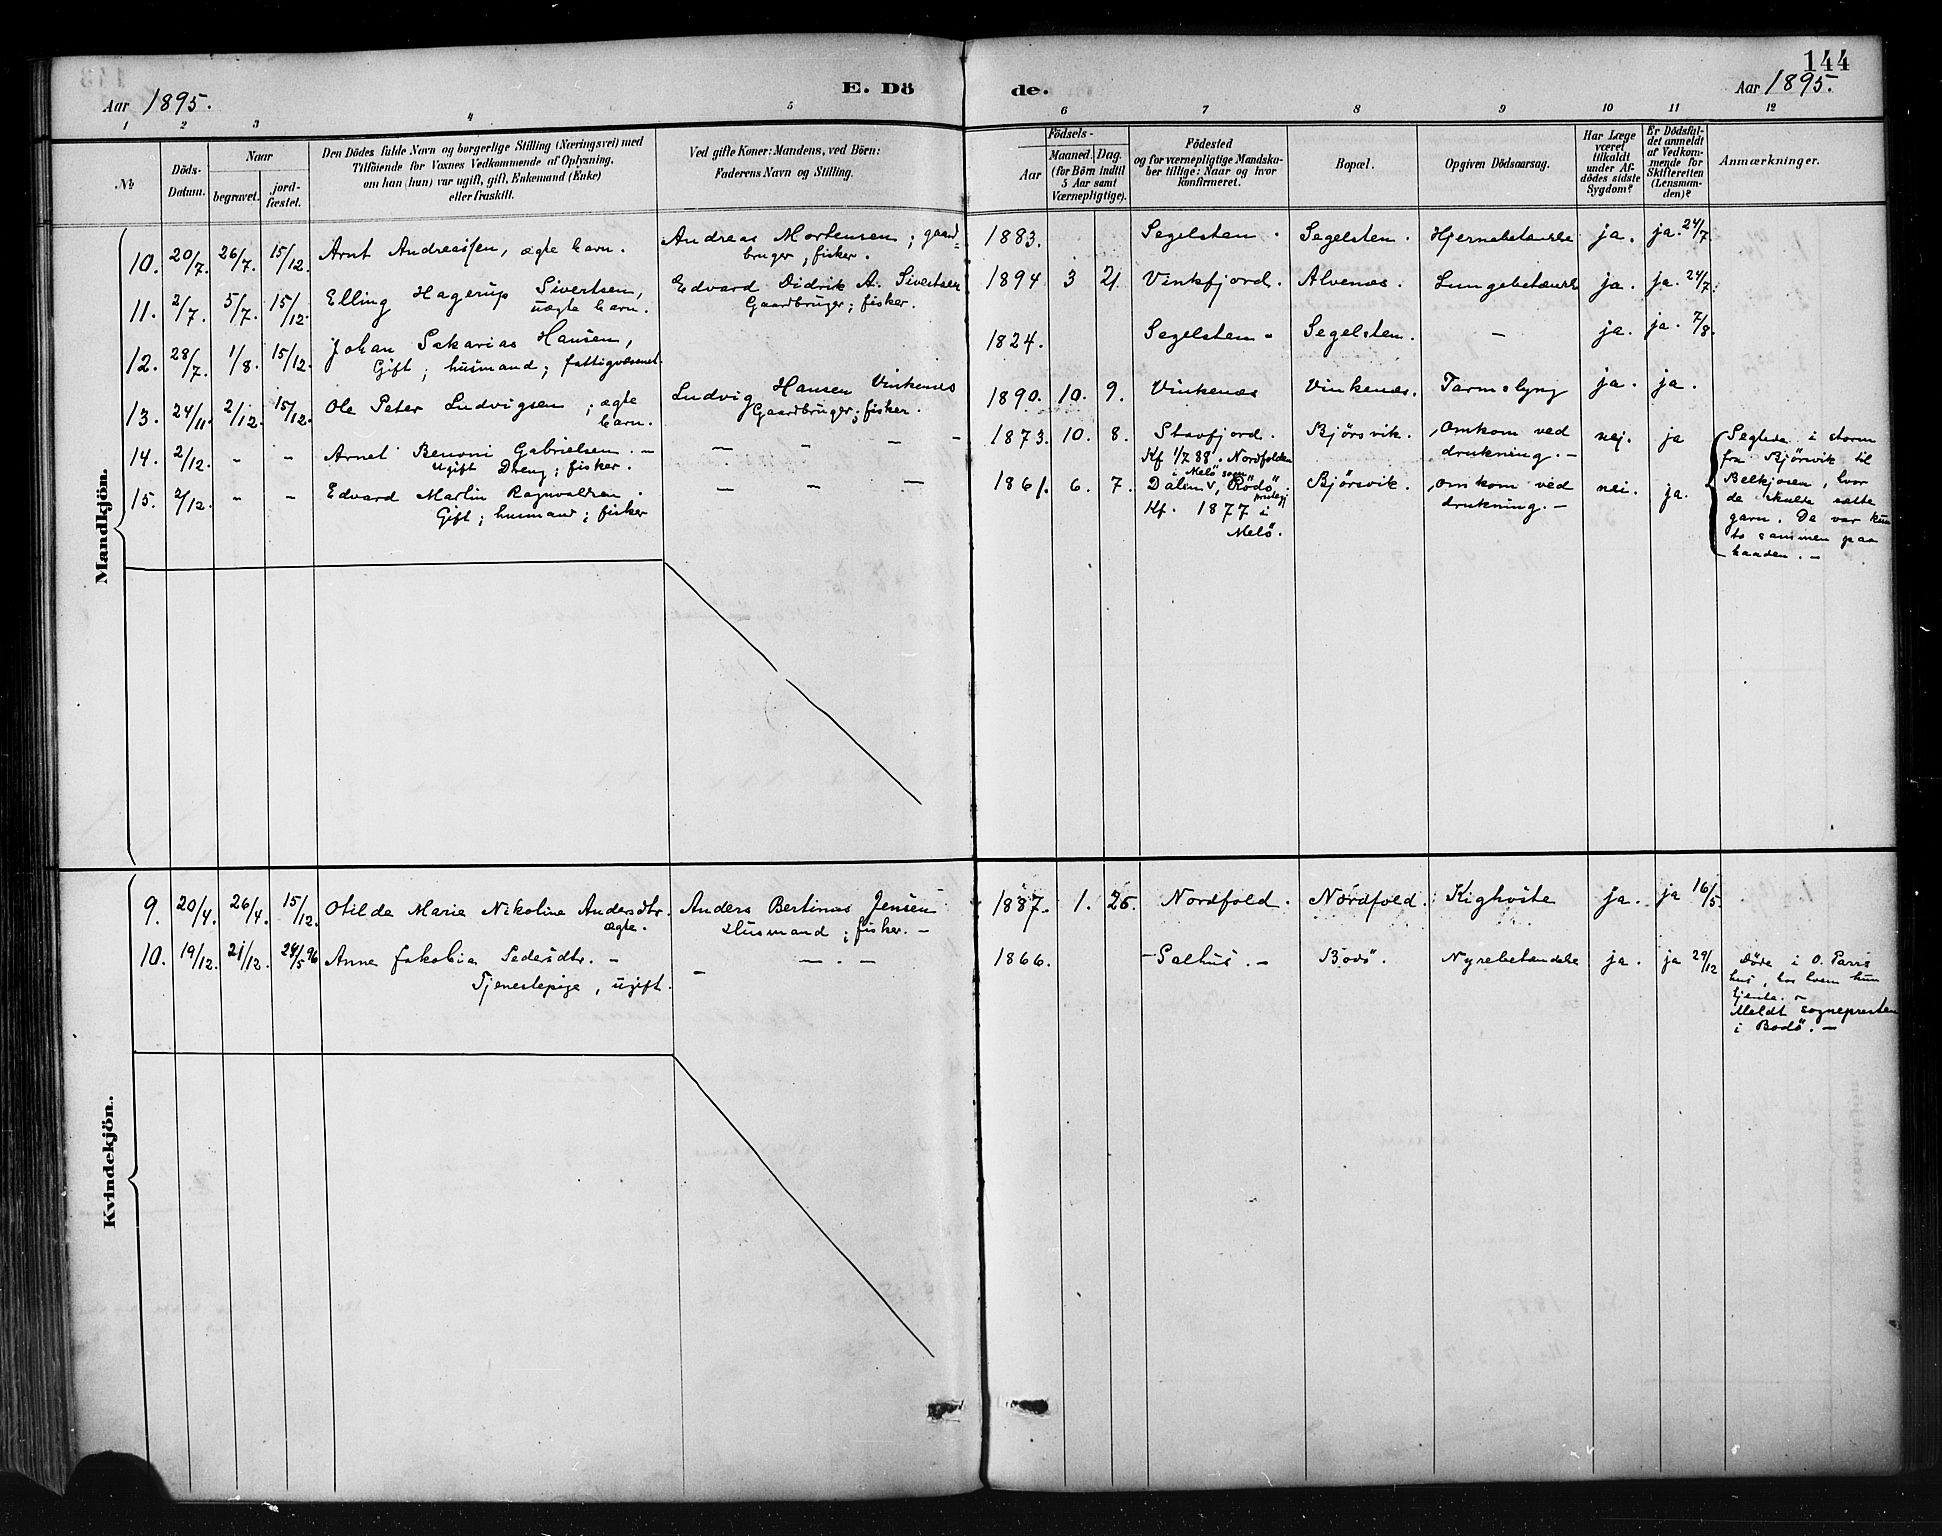 144
Aar 1895.
E. Dö
de.
Aar 1895.
1 2 3 4 5 6 7 8 9 10 11 12
No
Döds-Datum.
Naar
begravet.
jord-fæstet.
Den Dödes fulde Navn og borgerlige Stilling (Næringsvei) med
Tilföiende for Voxnes Vedkommende af Oplysning,
om han (hun) var ugift, gift, Enkemand (Enke)
eller fraskilt.
Ved gifte Koner: Mandens, ved Börn:
Faderens Navn og Stilling.
Födsels-
Aar
Maaned. Dag.
(for Börn indtil
5 Aar samt
Værnepligtige).
Födested
og for værnepligtige Mandska-
ber tillige: Naar og hvor
konfirmeret.
Bopæl.
Opgiven Dödsaarsag.
Har Læge
været
tilkaldt
under Af-
dödes sidste
Sygdom?
Er Dödsfal-
det anmeldt
af Vedkom-
mende for
Skifteretten
(Lensman-
den)?
Anmærkninger.
Mandkjön.
10. 20/7. 26/7. 15/12. Arnt Andreassen, ægte barn. Andreas Mortensen; gaard=
bruger; fisker.
1883. Segelsten. Segelsten. Hjernebetændelse ja. ja. 24/7
11. 2/7. 5/7. 15/12. Elling Hagerup Sivertsen,
uægte barn.
Edvard Didrik A. Sivertsen
Gaardbruger; fisker.
1894 3 21 Vinkfjord. Alvenæs. Lungebetændelse ja. ja. 24/7.
12. 28/7. 1/8. 15/12. Johan Sakarias Hansen,
Gift; husmand; fattigvæsnet.
1824. Segelsten. Segelsten. – ja. ja. 7/8.
13. 24/11. 2/12. 15/12. Ole Peter Ludvigsen; ægte
barn.
Ludvig Hansen Vinkenes
Gaardbruger; fisker.
1890. 10. 9. Vinkenæs Vinkenæs. Tarmslyng ja. ja.
14. 2/12. - - Arnet Benoni Gabrielsen. –
ugift Dreng; fisker.
– – – –
1873. 10. 8. Stavfjord. Bjørsvik. Omkom ved
drukning. –
nej. ja
Kf 1/7 88. Nordfolden
i Melö sogn
15. 2/12. - - Edvard Martin Ragnvaldsen.
Gift; husmand; fisker
– – –
1861. 6. 7. Dalen v, Rödö. Bjørsvik. omkom ved
drukning. –
nei. ja.
prestegj
Kf. 1877 i
Melö.
Seglede i storm
fra Bjørsvik til
Belkjosen, hvor
de skulde sætte
garn. De var kun
to sammen paa
baaden. –
Kvindekjön.
9. 20/4. 26/4. 15/12. Otilde Marie Nikoline Andersdtr.
ægte.
Anders Bertinus Jensen
Husmand; fisker. –
1887. 1. 25. Nordfold. Nordfold. Kighoste ja. ja 16/5.
10. 19/12. 21/12. 24/5 96 Anne Jakobia Pedersdtr. –
Tjenestepige, ugift.
– – – –
1866. - Salhus. – Bodö. Nyrebetændelse ja. ja 29/12
Døde i O. Parrs
hus, hos hvem hun
tjente. –
Meldt sognepresten
i Bodö. –